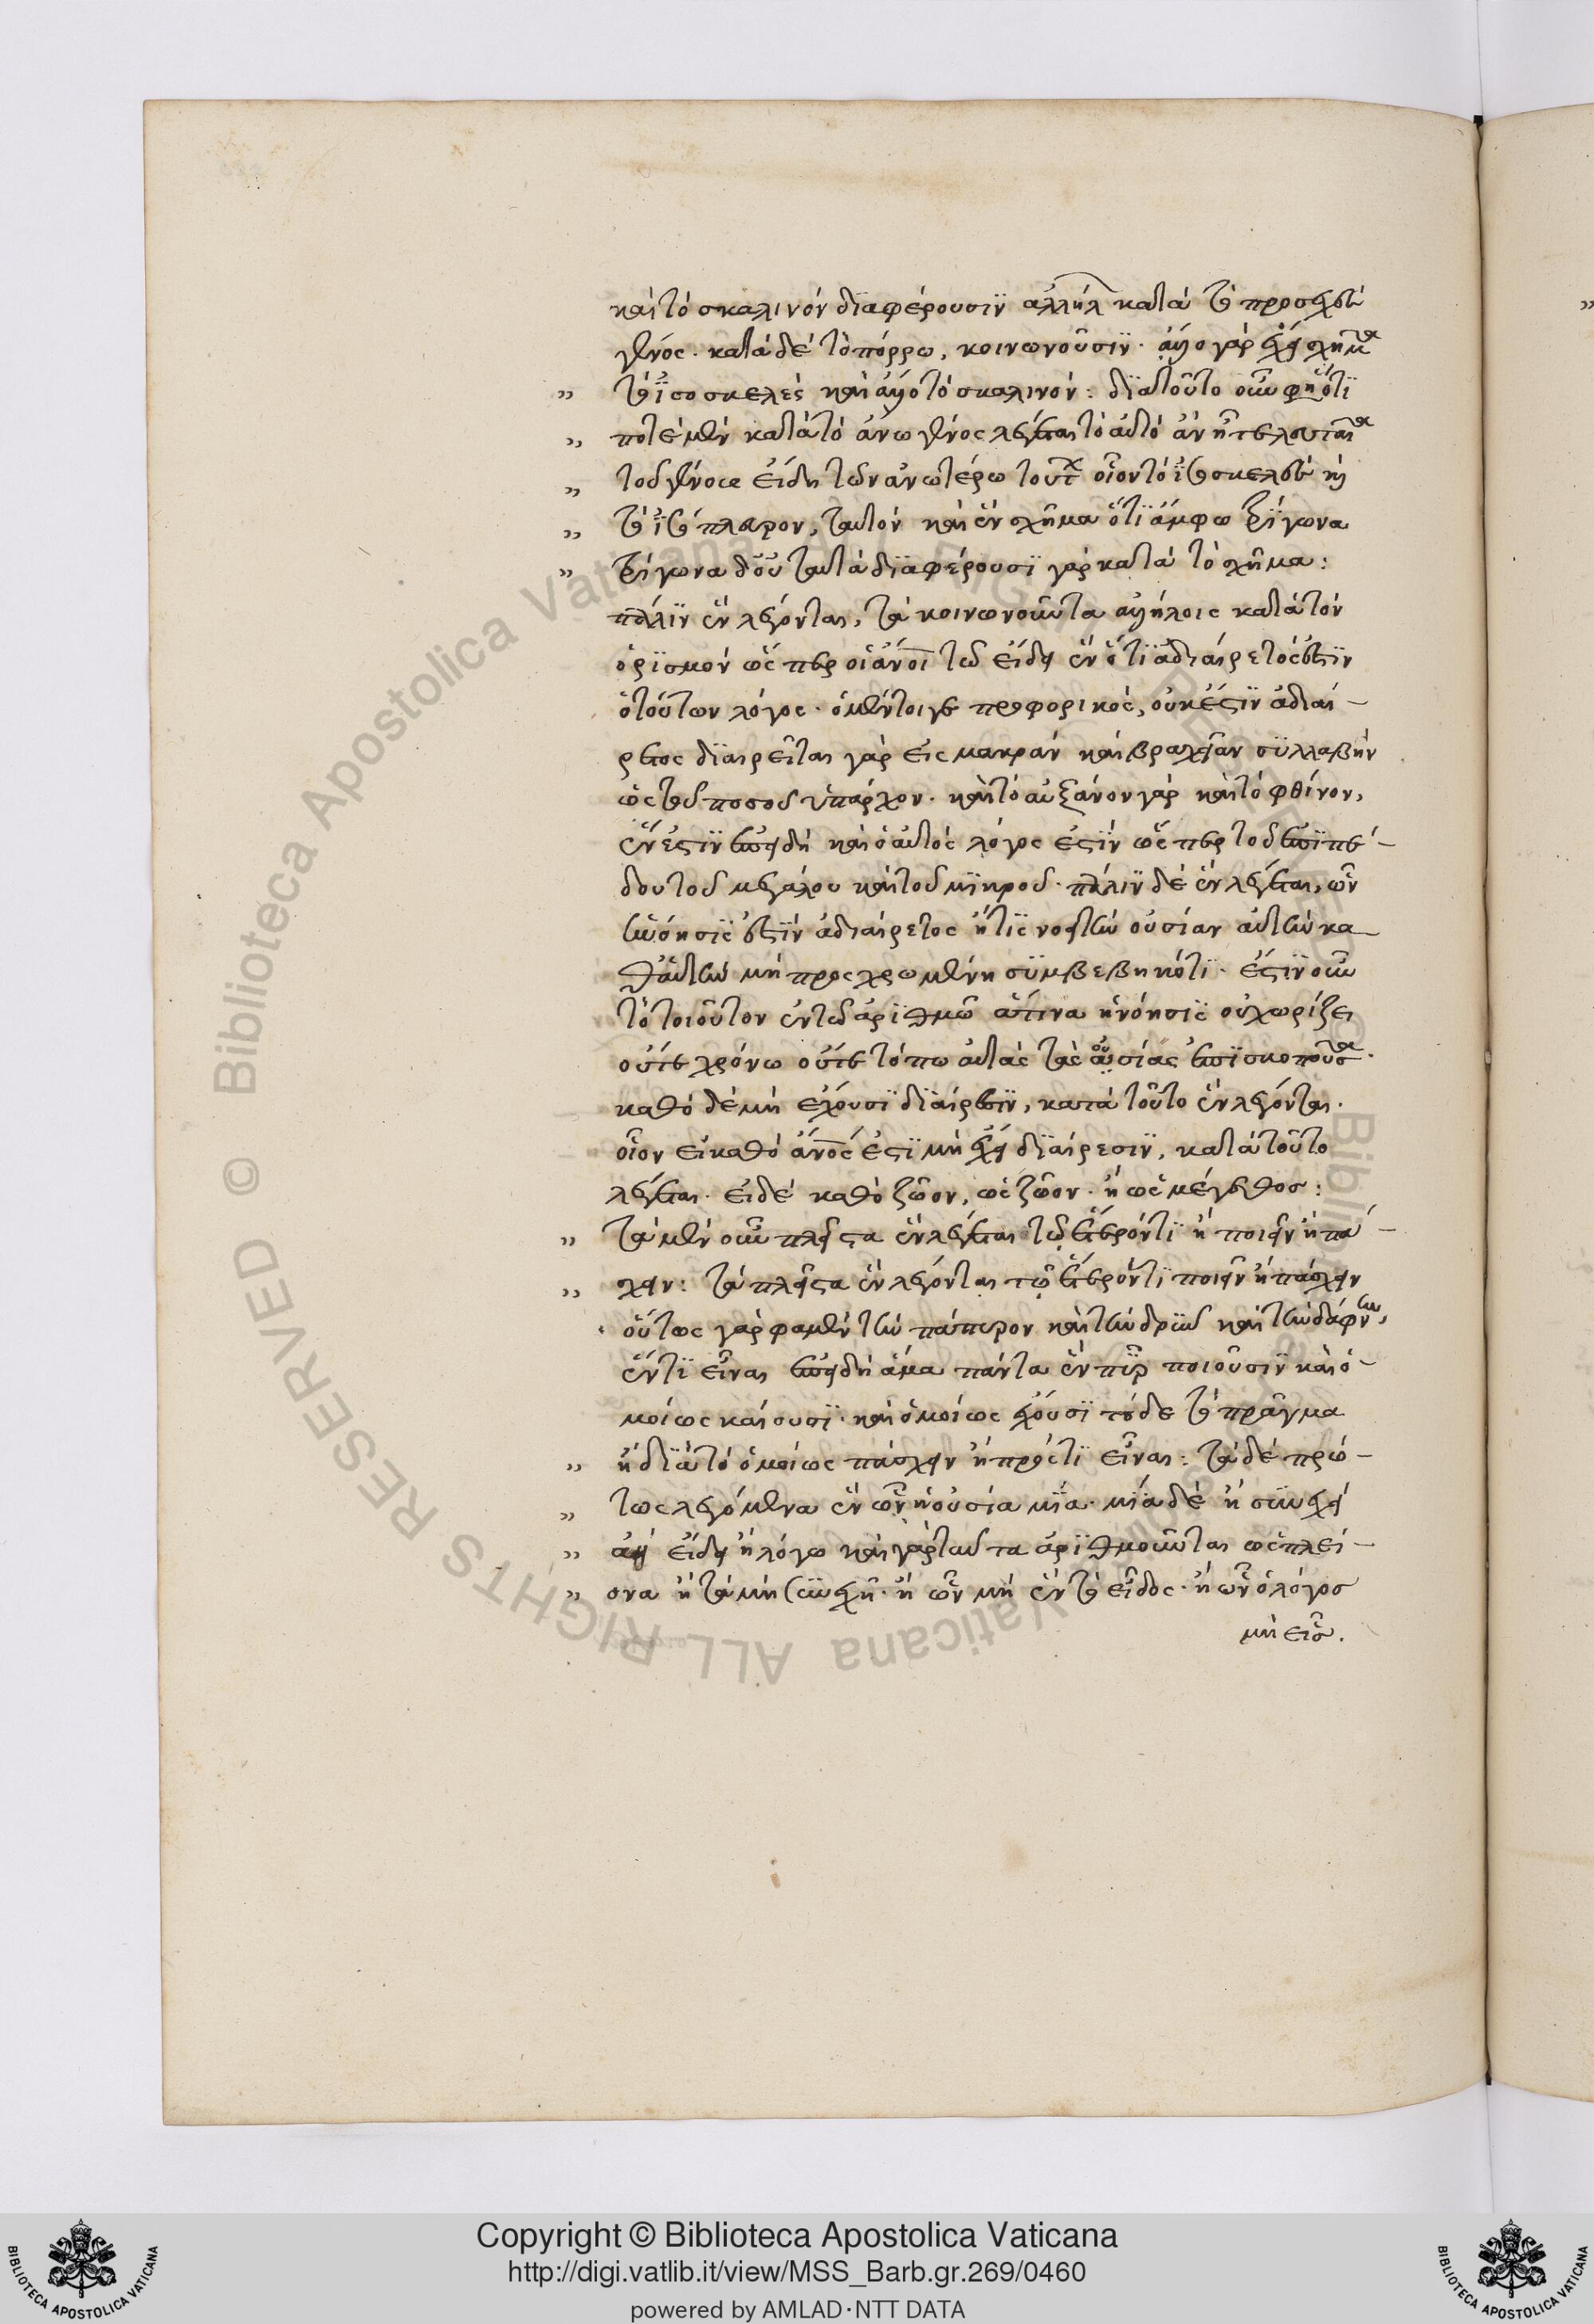 καὶ τὸ σκαλινὸν διαφέρουσιν ἀλλήλ κατὰ τὸ προσεχὲς
γένος. κατὰ δὲ τὸ πόρρω, κοινωνοῦσιν. ἄλλο γὰρ ἔχει σχῆμα
τὸ ἰσοσκελὲς καὶ ἄλλο τὸ σκαλινόν: διὰ τοῦτο οὖν φη ὅτι
ποτὲ μὲν κατὰ τὸ ἄνω γένος λέγεται τὸ αὐτὸ ἂν ᾖ τελευταῖα
τοῦ γένους εἴδη τῶν ἀνωτέρω τούτ οἷον τὸ ἰσοσκελὲς καὶ
τὸ ἰσόπλευρον, ταυτὸν καὶ ἓν σχῆμα ὅτι ἄμφω τρίγωνα
τρίγωνα δ' οὐ ταυτὰ διαφέρουσι γὰρ κατὰ τὸ σχῆμα:
πάλιν ἓν λέγονται, τὰ κοινωνοῦντα ἀλλήλοις κατὰ τὸν
ὁρισμὸν ὥσπερ οἱ ἄνοι τῶ εἴδει ἓν ὅτι ἀδιαίρετός ἐστιν
ὁ τούτων λόγος. ὁ μέντοιγε προφορικὸς, οὐκ ἔστιν ἀδιαί-
ρετος διαιρεῖται γὰρ εἰς μακρὰν καὶ βραχεῖαν συλλαβὴν
ὡς τοῦ ποσοῦ ὑπάρχον. καὶ τὸ αὐξάνον γὰρ καὶ τὸ φθίνον,
ἕν ἐστιν ἐπειδὴ καὶ ὁ αὐτὸς λόγος ἐστὶν ὥσπερ τοῦ ἐπιπέ-
δου τοῦ μεγάλου καὶ τοῦ μικροῦ. πάλιν δὲ ἓν λέγεται, ὧν
ἡ νόησίς ἐστιν ἀδιαίρετος ἥτις νοεῖ τὴν οὐσίαν αὐτὴν κα-
θ' αὑτὴν μὴ προσχρωμένη συμβεβηκότι. ἔστιν οὖν
τὸ τοιοῦτον ἓν τῶ ἀριθμῶ ἅτινα ἡ νόησις οὐ χωρίζει
οὔτε χρόνω οὔτε τόπω αὐτὰς τὰς οὐσίας ἐπισκοποῦσα.
καθὸ δὲ μὴ ἔχουσι διαίρεσιν, κατὰ τοῦτο ἓν λέγονται.
οἷον εἰ καθὸ ἄνος ἐστι μὴ ἔχει διαίρεσιν, κατὰ τοῦτο
λέγεται. εἰ δὲ καθὸ ζῶον, ὡς ζῶον. ἢ ὡς μέγεθος:
τὰ μὲν οὖν πλεῖστα ἓν λέγεται τῶ ἕτερόν τι ἢ ποιεῖν ἢ πά-
σχειν: τὰ πλεῖστα ἓν λέγονται τῶ ἕτερόν τι ποιεῖν ἢ πάσχειν
οὕτως γὰρ φαμὲν τὴν πάπυρον καὶ τὴν δρῦν καὶ τὴν δάφνην,
ἕν τι εἶναι ἐπειδὴ ἅμα πάντα ἓν πῦρ ποιοῦσιν καὶ ὁ-
μοίως καίουσι. καὶ ὁμοίως ἔχουσι τόδε τὸ πρᾶγμα
ἢ διὰ τὸ ὁμοίως πάσχειν ἢ πρός τι εἶναι: τὰ δὲ πρώ-
τως λεγόμενα ἓν ὧν ἡ οὐσία μία. μία δὲ ἢ συνεχεῖ
ἢ εἴδει ἢ λόγω καὶ γὰρ ταῦτα ἀριθμοῦνται ὡς πλεί-
ονα ἢ τὰ μὴ συνεχῆ. ἢ ὧν μὴ ἓν τὸ εἶδος. ἢ ὧν ὁ λόγος
μὴ εἷς.
Copyright © Biblioteca Apostolica Vaticana
http://digi.vatlib.it/view/MSS_Barb.gr.269/0460
powered by AMLAD·NTT DATA